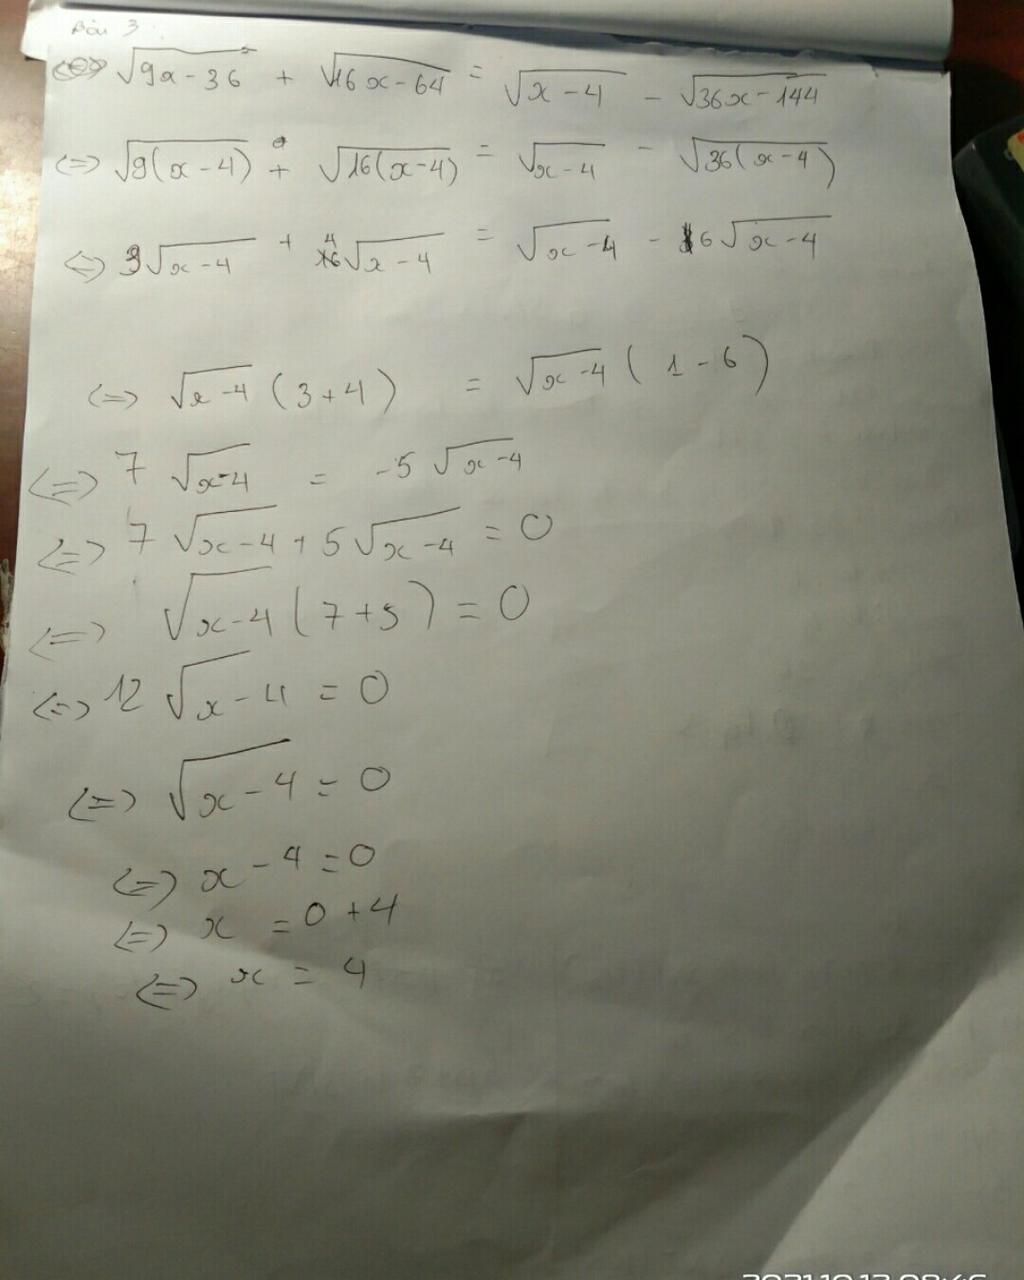 Bài 3
<=> √9x-36 + √16x-64 = √x-4 - √36x-144
<=> √9(x-4) + √16(x-4) = √x-4 - √36(x-4)
<=> 3√x-4 + 4√x-4 = √x-4 - 6√x-4
<=> √x-4 (3+4) = √x-4 (1-6)
<=> 7 √x-4 = -5 √x-4
<=> 7 √x-4 + 5√x-4 = 0
<=> √x-4 (7+5) = 0
<=> 12 √x-4 = 0
<=> √x-4 = 0
<=> x-4 = 0
<=> x = 0+4
<=> x = 4